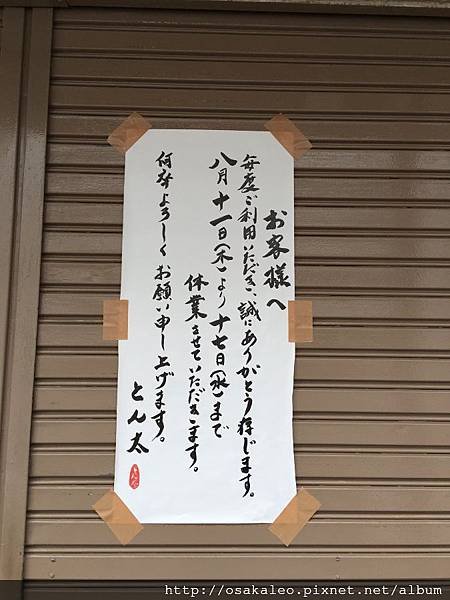 お客様へ
毎度ご利用いただき、誠にありがとう存じます。
八月十一日(木)より十七日(水)まで
休業させていただきます。
何卒よろしくお願い申し上げます。
とん太
http://osakaleo.pixnet.net/album